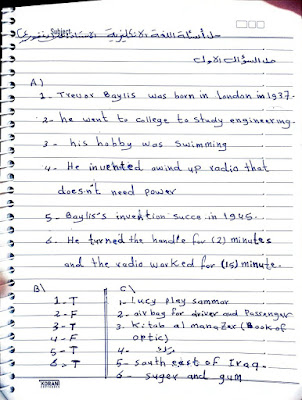 حل أسئلة اللغة الانكليزية الاستاذ
حل السؤال الاول
A)
1- Trevor Baylis was born in London in 1937.
2- he went to college to study engineering.
3- his hobby was swimming
4- He invented a wind up radio that
doesn't need power
5- Baylis's invention succe in 1945.
6- He turned the handle for (2) minutes
and the radio worked for (15) minute.
B\
1-T
2-F
3-T
4-F
5-T
6-T
C\
1- Lucy play sammar
2- air bag for driver and Passenger
3- Kitab al manazer (Book of
optic)
4-
5- south east of Iraq.
6- suger and gum
KORANI